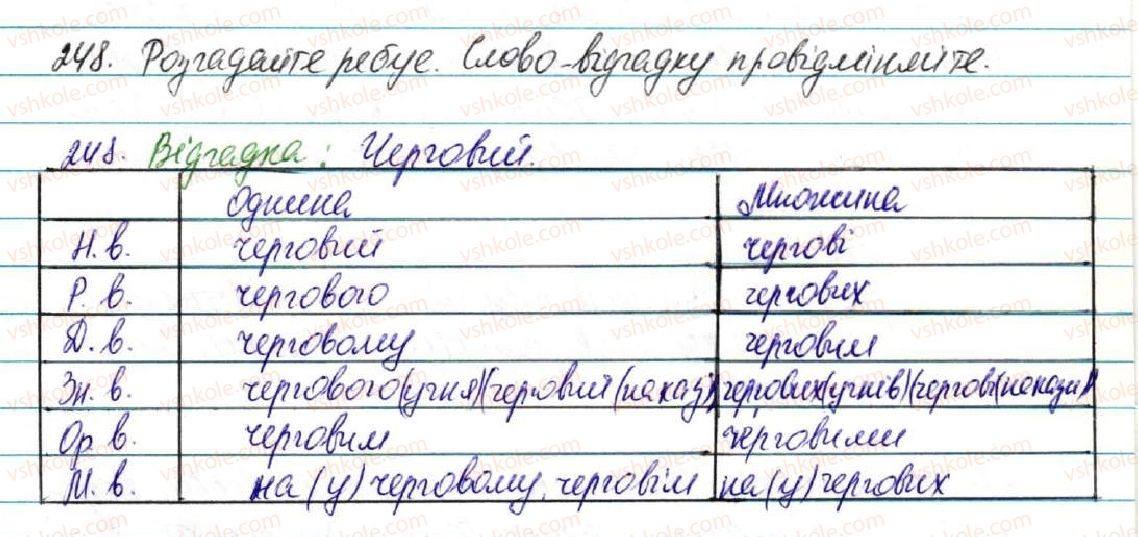 248. Розгадайте ребус. Слово-відгадку провідміняйте.
248. Відгадка: Черговий.
Однина Множина
Н. в. черговий чергові
Р. в. чергового чергових
Д. в. черговому черговим
Зн. в. чергового(учня)(черговий(наказ)) чергових(учнів)(чергові(накази))
Ор. в. черговим черговими
М. в. на (у) черговому, черговім на (у) чергових